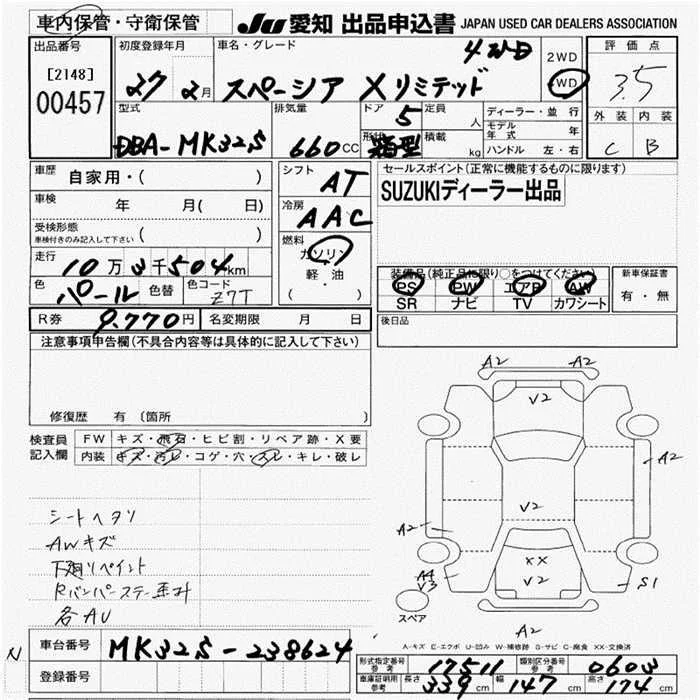 車内保管・守衛保管
JU 愛知 出品申込書 JAPAN USED CAR DEALERS ASSOCIATION
出品番号
[2148]
00457
初度登録年月
27 2月
車名・グレード
スペーシア Xリミテッド 4WD
2WD
4WD
評価点
3.5
外装 内装
C B
型式
DBA-MK32S
排気量
660 CC
ドア 5
形状 箱型
定員 人
積載 kg
ディーラー・並行
モデル年式 年
ハンドル 左・右
車歴 自家用・( )
車検 年 月( 日)
受検形態
車検付きのみ記入して下さい
走行 10万3千504km
色 パール 色替 色コード Z7T
R券 9.770円 名変期限 月 日
シフト AT
冷房 AAC
燃料 ガソリン
軽・油
( )
セールスポイント(正常に機能するものに限ります)
SUZUKIディーラー出品
装備品(純正品に限り〇をつけてください)
PS PW エアB AW
SR ナビ TV カワシート
新車保証書
有・無
後日品
注意事項申告欄(不具合内容等は具体的に記入して下さい)
修復歴 有 〔箇所
検査員記入欄
FW キズ・飛石・ヒビ割・リペア跡・X要
内装 キズ・汚レ・コゲ・穴・スレ・キレ・破レ
シートヘタリ
AWキズ
下廻リペイント
Rバンパーステー
各AU
A2 A2
V2
A2
V2
A2
XX
V2
A4
V3
S1
スペア
A2
A-キズ E-エクボ U-凹み W-補修跡 S-サビ C-腐食 XX-交換済
N
車台番号 MK32S-238624
登録番号
形式指定番号 参考 17511 類別区分番号 参考 0603
車庫証明用 参考 長さ 339cm 幅 147cm 高さ 174cm